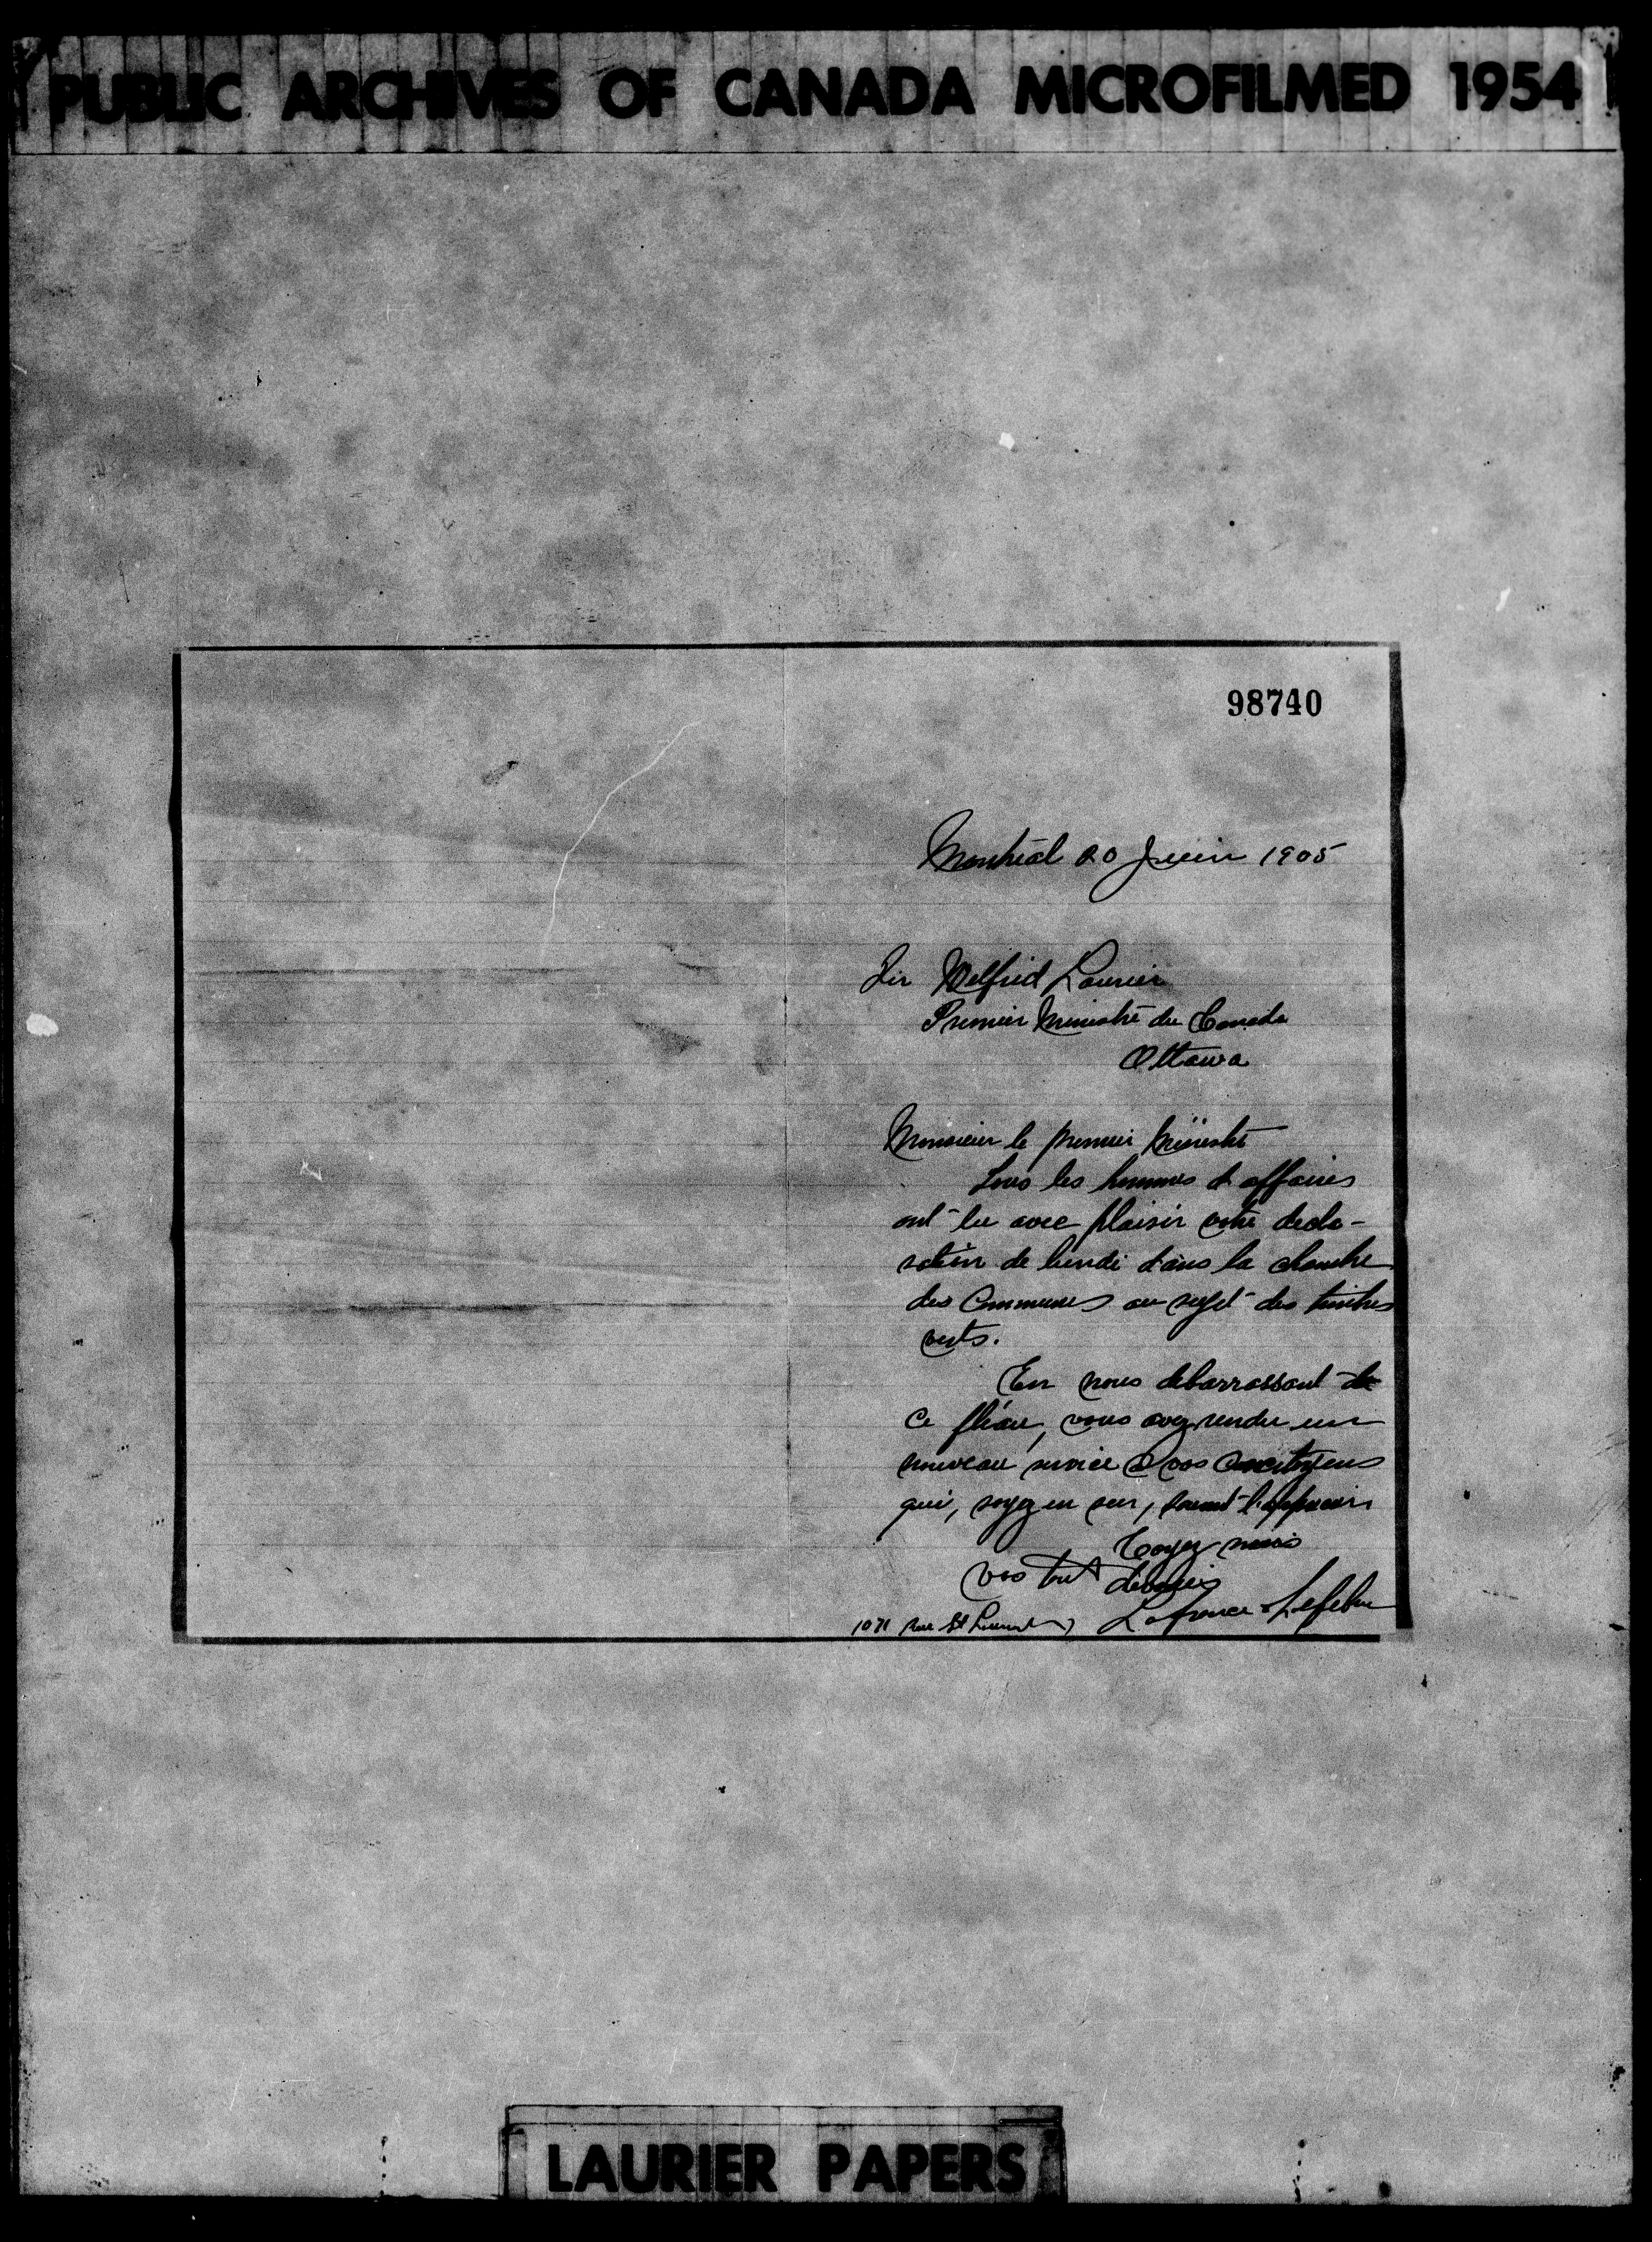 PUBLIC ARCHIVES OF CANADA MICROFILMED 1954
98740
Montréal 20 Juin 1905
Sir Wilfrid Laurier
Premier Ministre du Canada
Ottawa
Monsieur le premier Ministre
Tous les hommes d affaires
ont lu avec plaisir votre decla-
ration de lundi dans la chambre
des Communes au sujet des timbres
verts.
En nous debarrassant de
ce fléau, vous avez rendu un
nouveau service à vos concitoyens
qui, soyez en sur, sauront l'apprecier
Croyez nous
Vos tout dévoués
Lafrance & Lefebvre
1071 rue St Laurent
LAURIER PAPERS